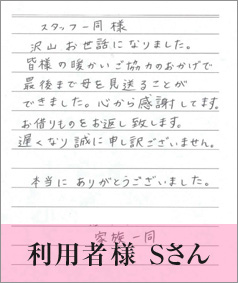 スタッフ一同 様
沢山 お世話になりました。
皆様の暖かいご協力のおかげで
最後まで母を見送ることが
できました。心から感謝してます。
お借りものをお返し致します。
遅くなり誠に申し訳ございません。
本当に ありがとうございました。
家族一同
利用者様 Sさん